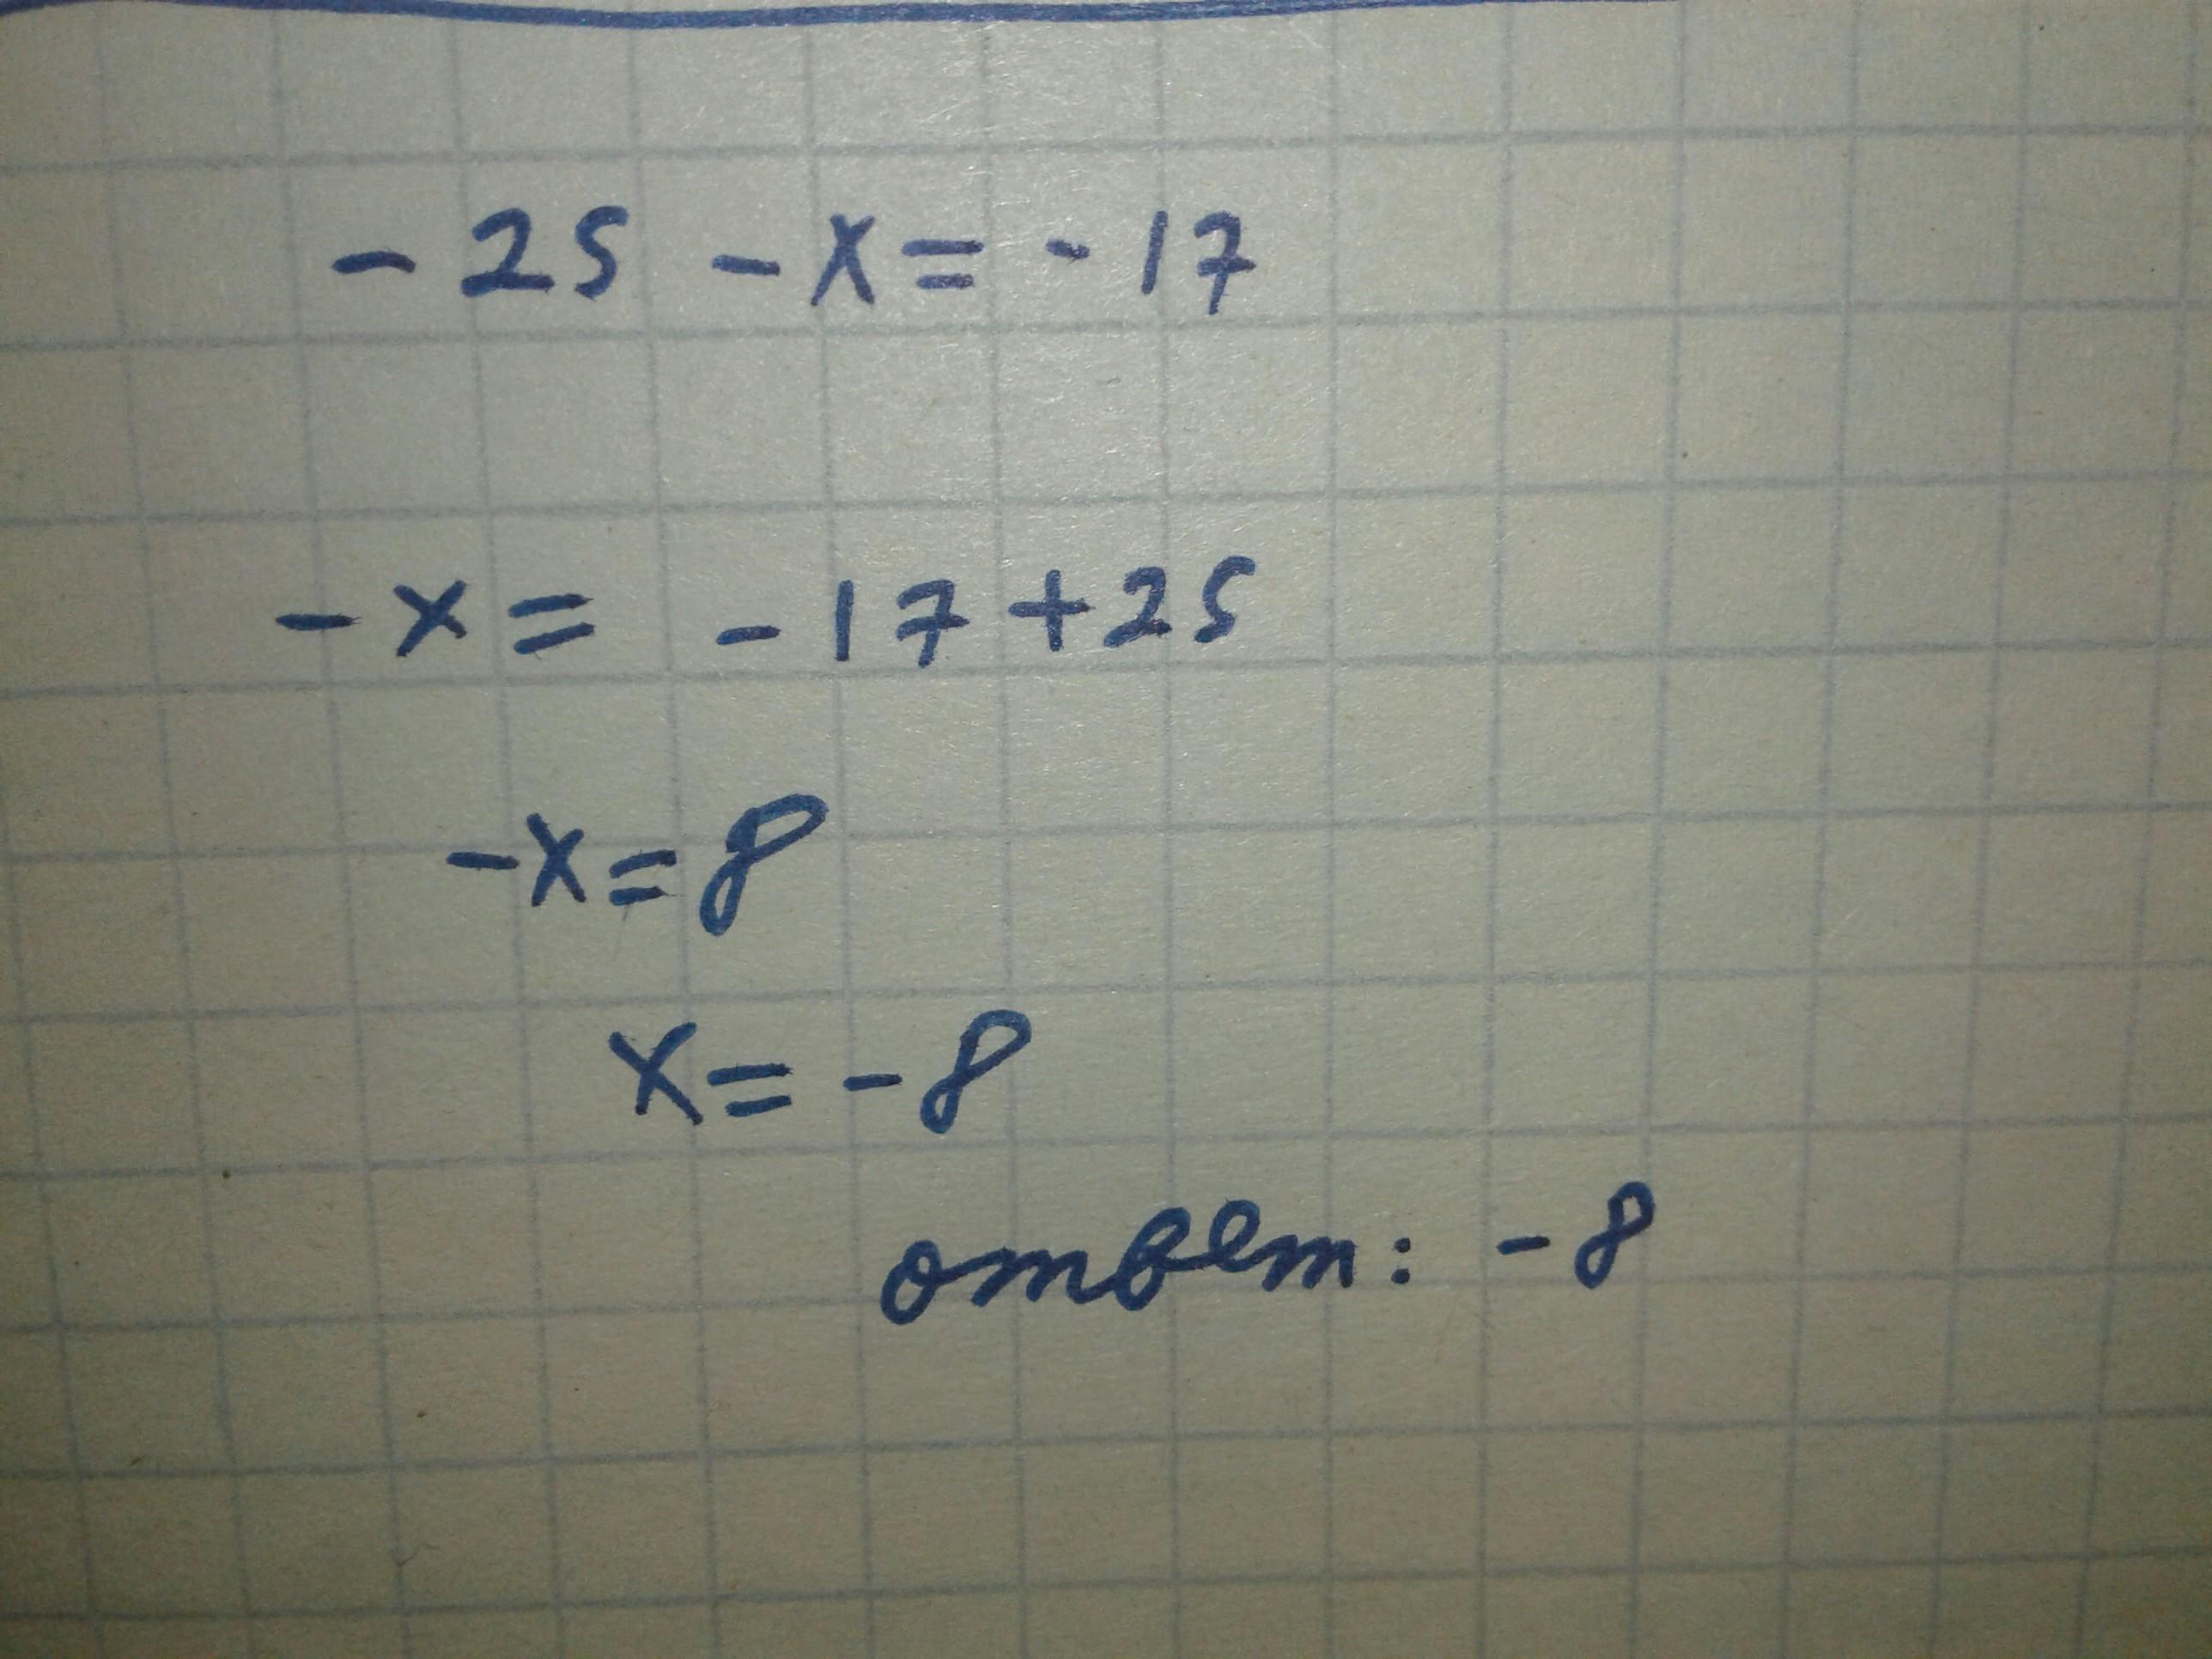 - 25 - x = - 17
- x = - 17 + 25
- x = 8
x = - 8
ответ: - 8